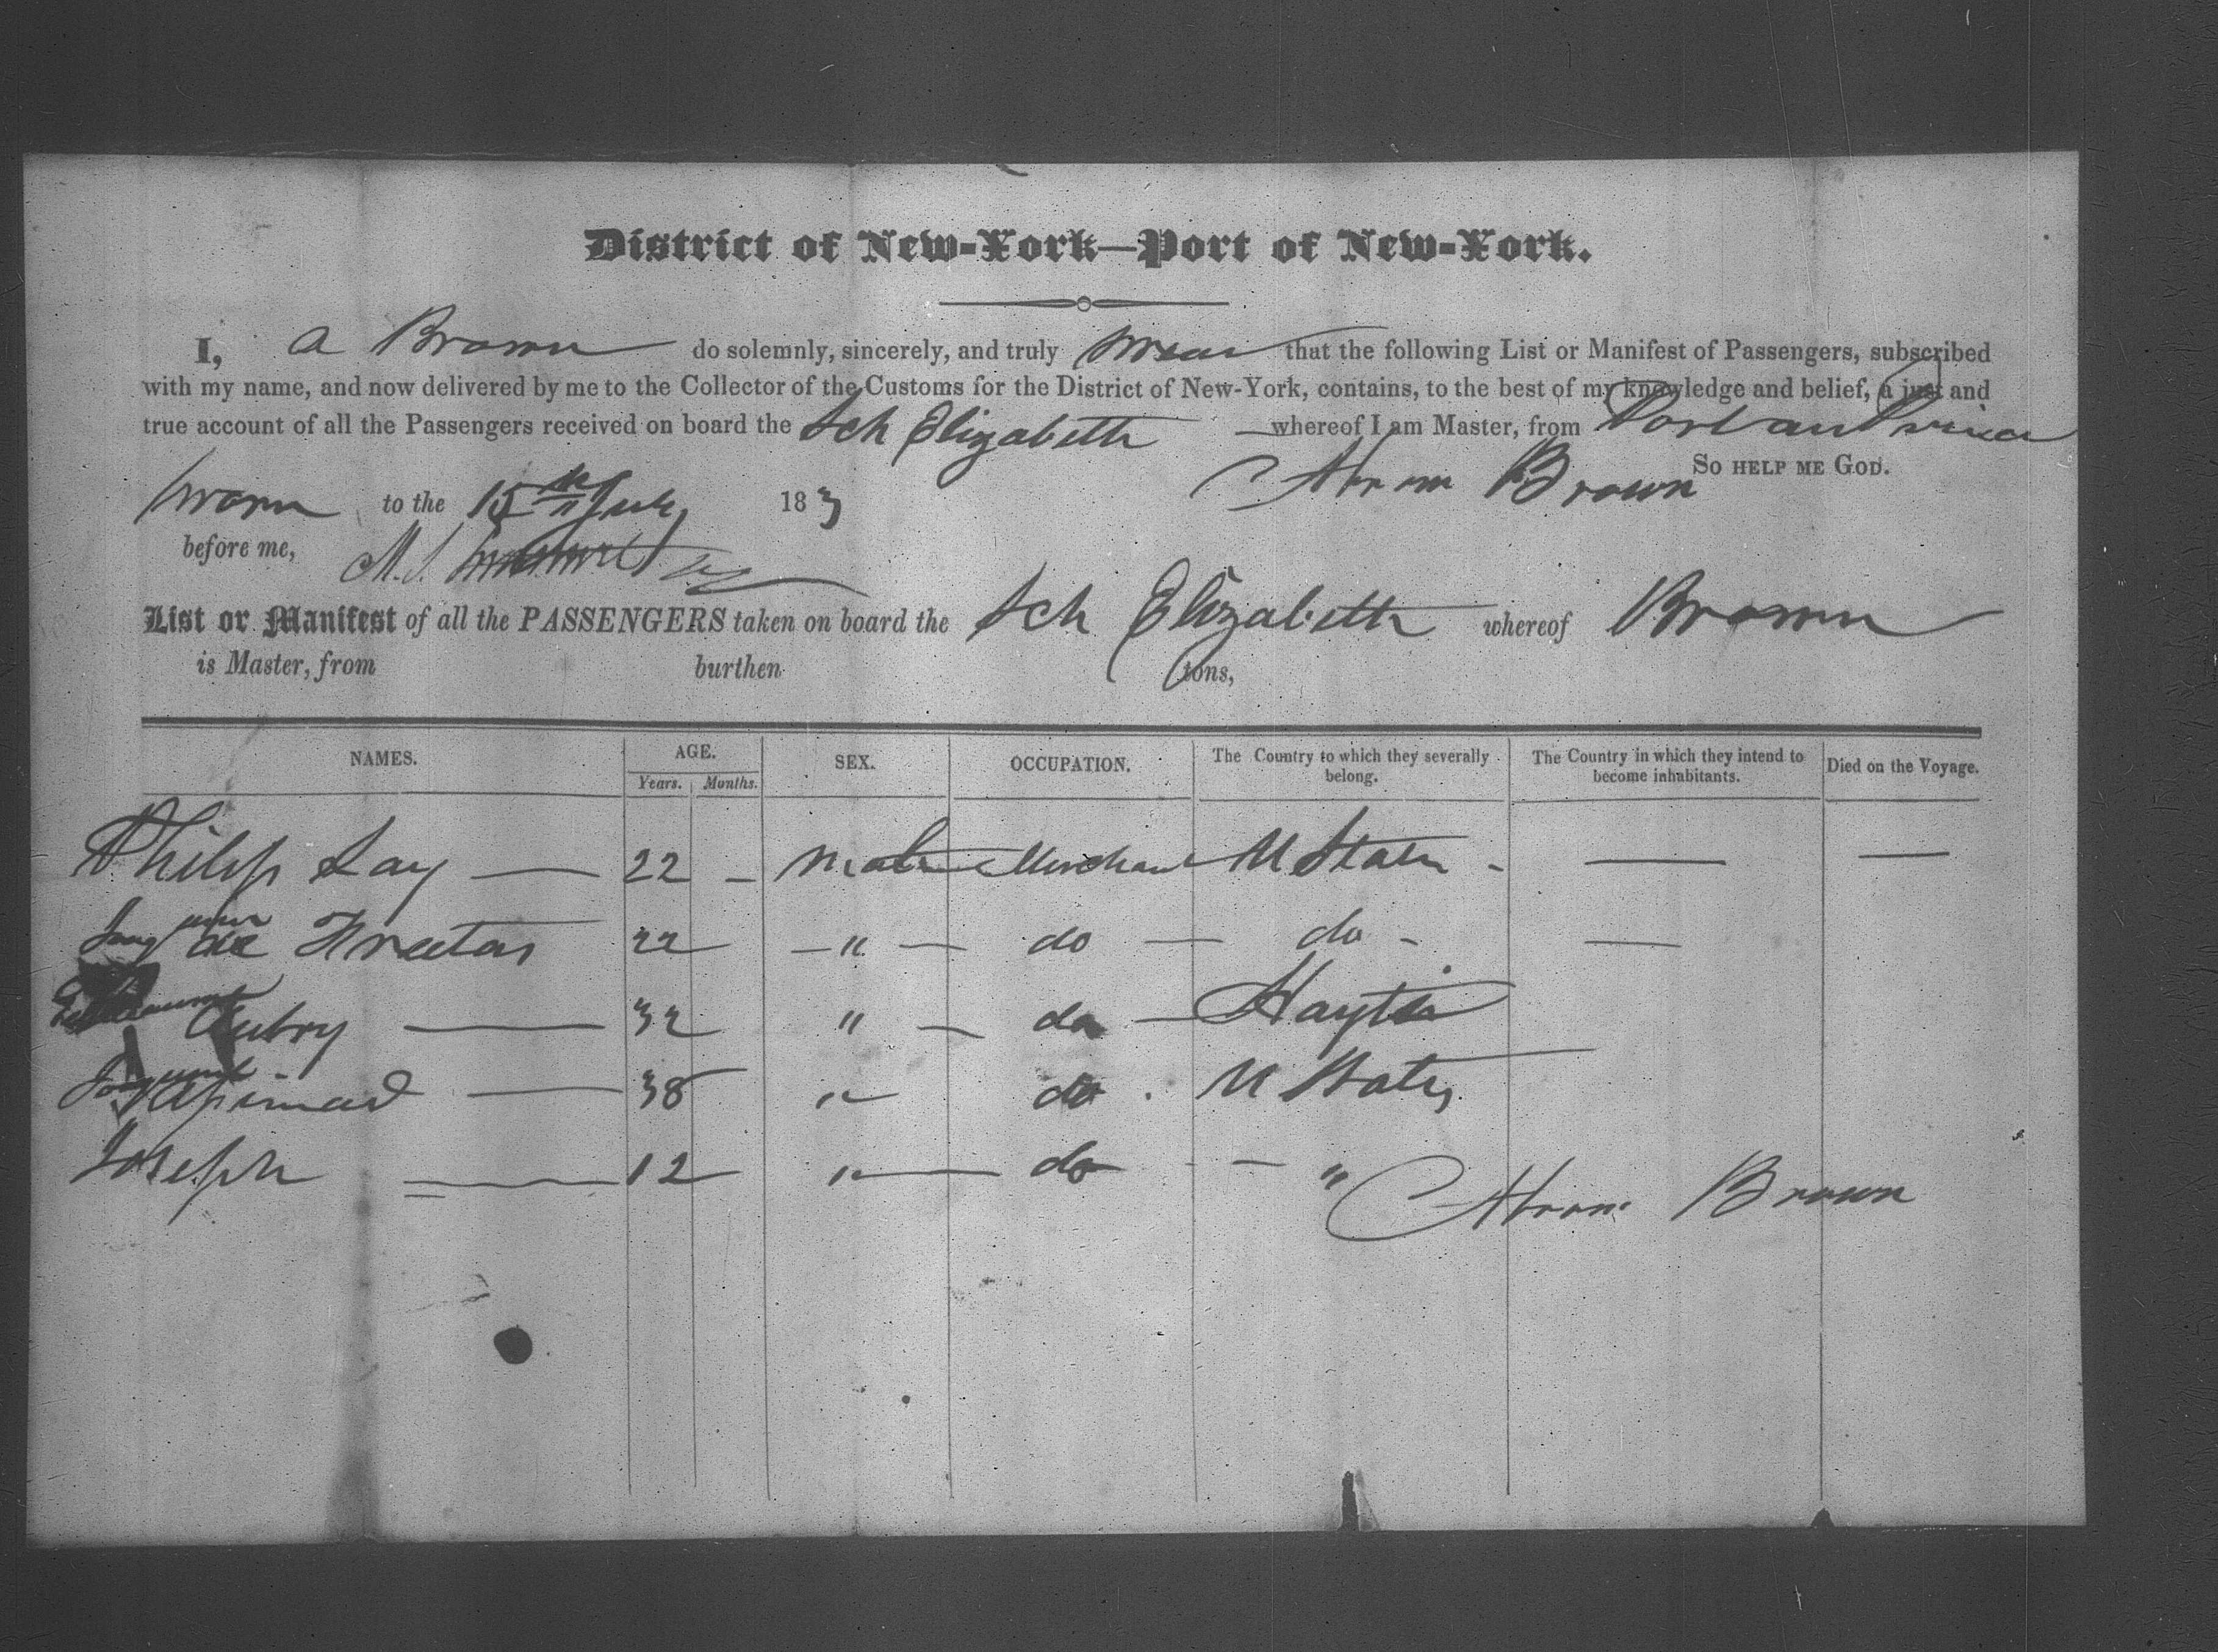 District of New-York—Port of New-York.
I, A Brown do solemnly, sincerely, and truly swear that the following List or Manifest of Passengers, subscribed
with my name, and now delivered by me to the Collector of the Customs for the District of New-York, contains, to the best of my knowledge and belief, a just and
true account of all the Passengers received on board the Sch Elizabeth whereof I am Master, from Port au Prince
So help me God.
Sworn to the 15th July 183 Abram Brown
before me, M.S.
List or Manifest of all the PASSENGERS taken on board the Sch Elizabeth whereof Brown
is Master, from burthen tons,
NAMES. AGE. SEX. OCCUPATION. The Country to which they severally belong. The Country in which they intend to become inhabitants. Died on the Voyage.
Years. Months.
Philip Lay — 22 - Male Merchant U States - — —
de Freetas 22 — " — do — do - —
Aubry — 32 " — do — Hayti
— 38 " do . U States
Joseph — 12 " — do - — "
Abram Brown